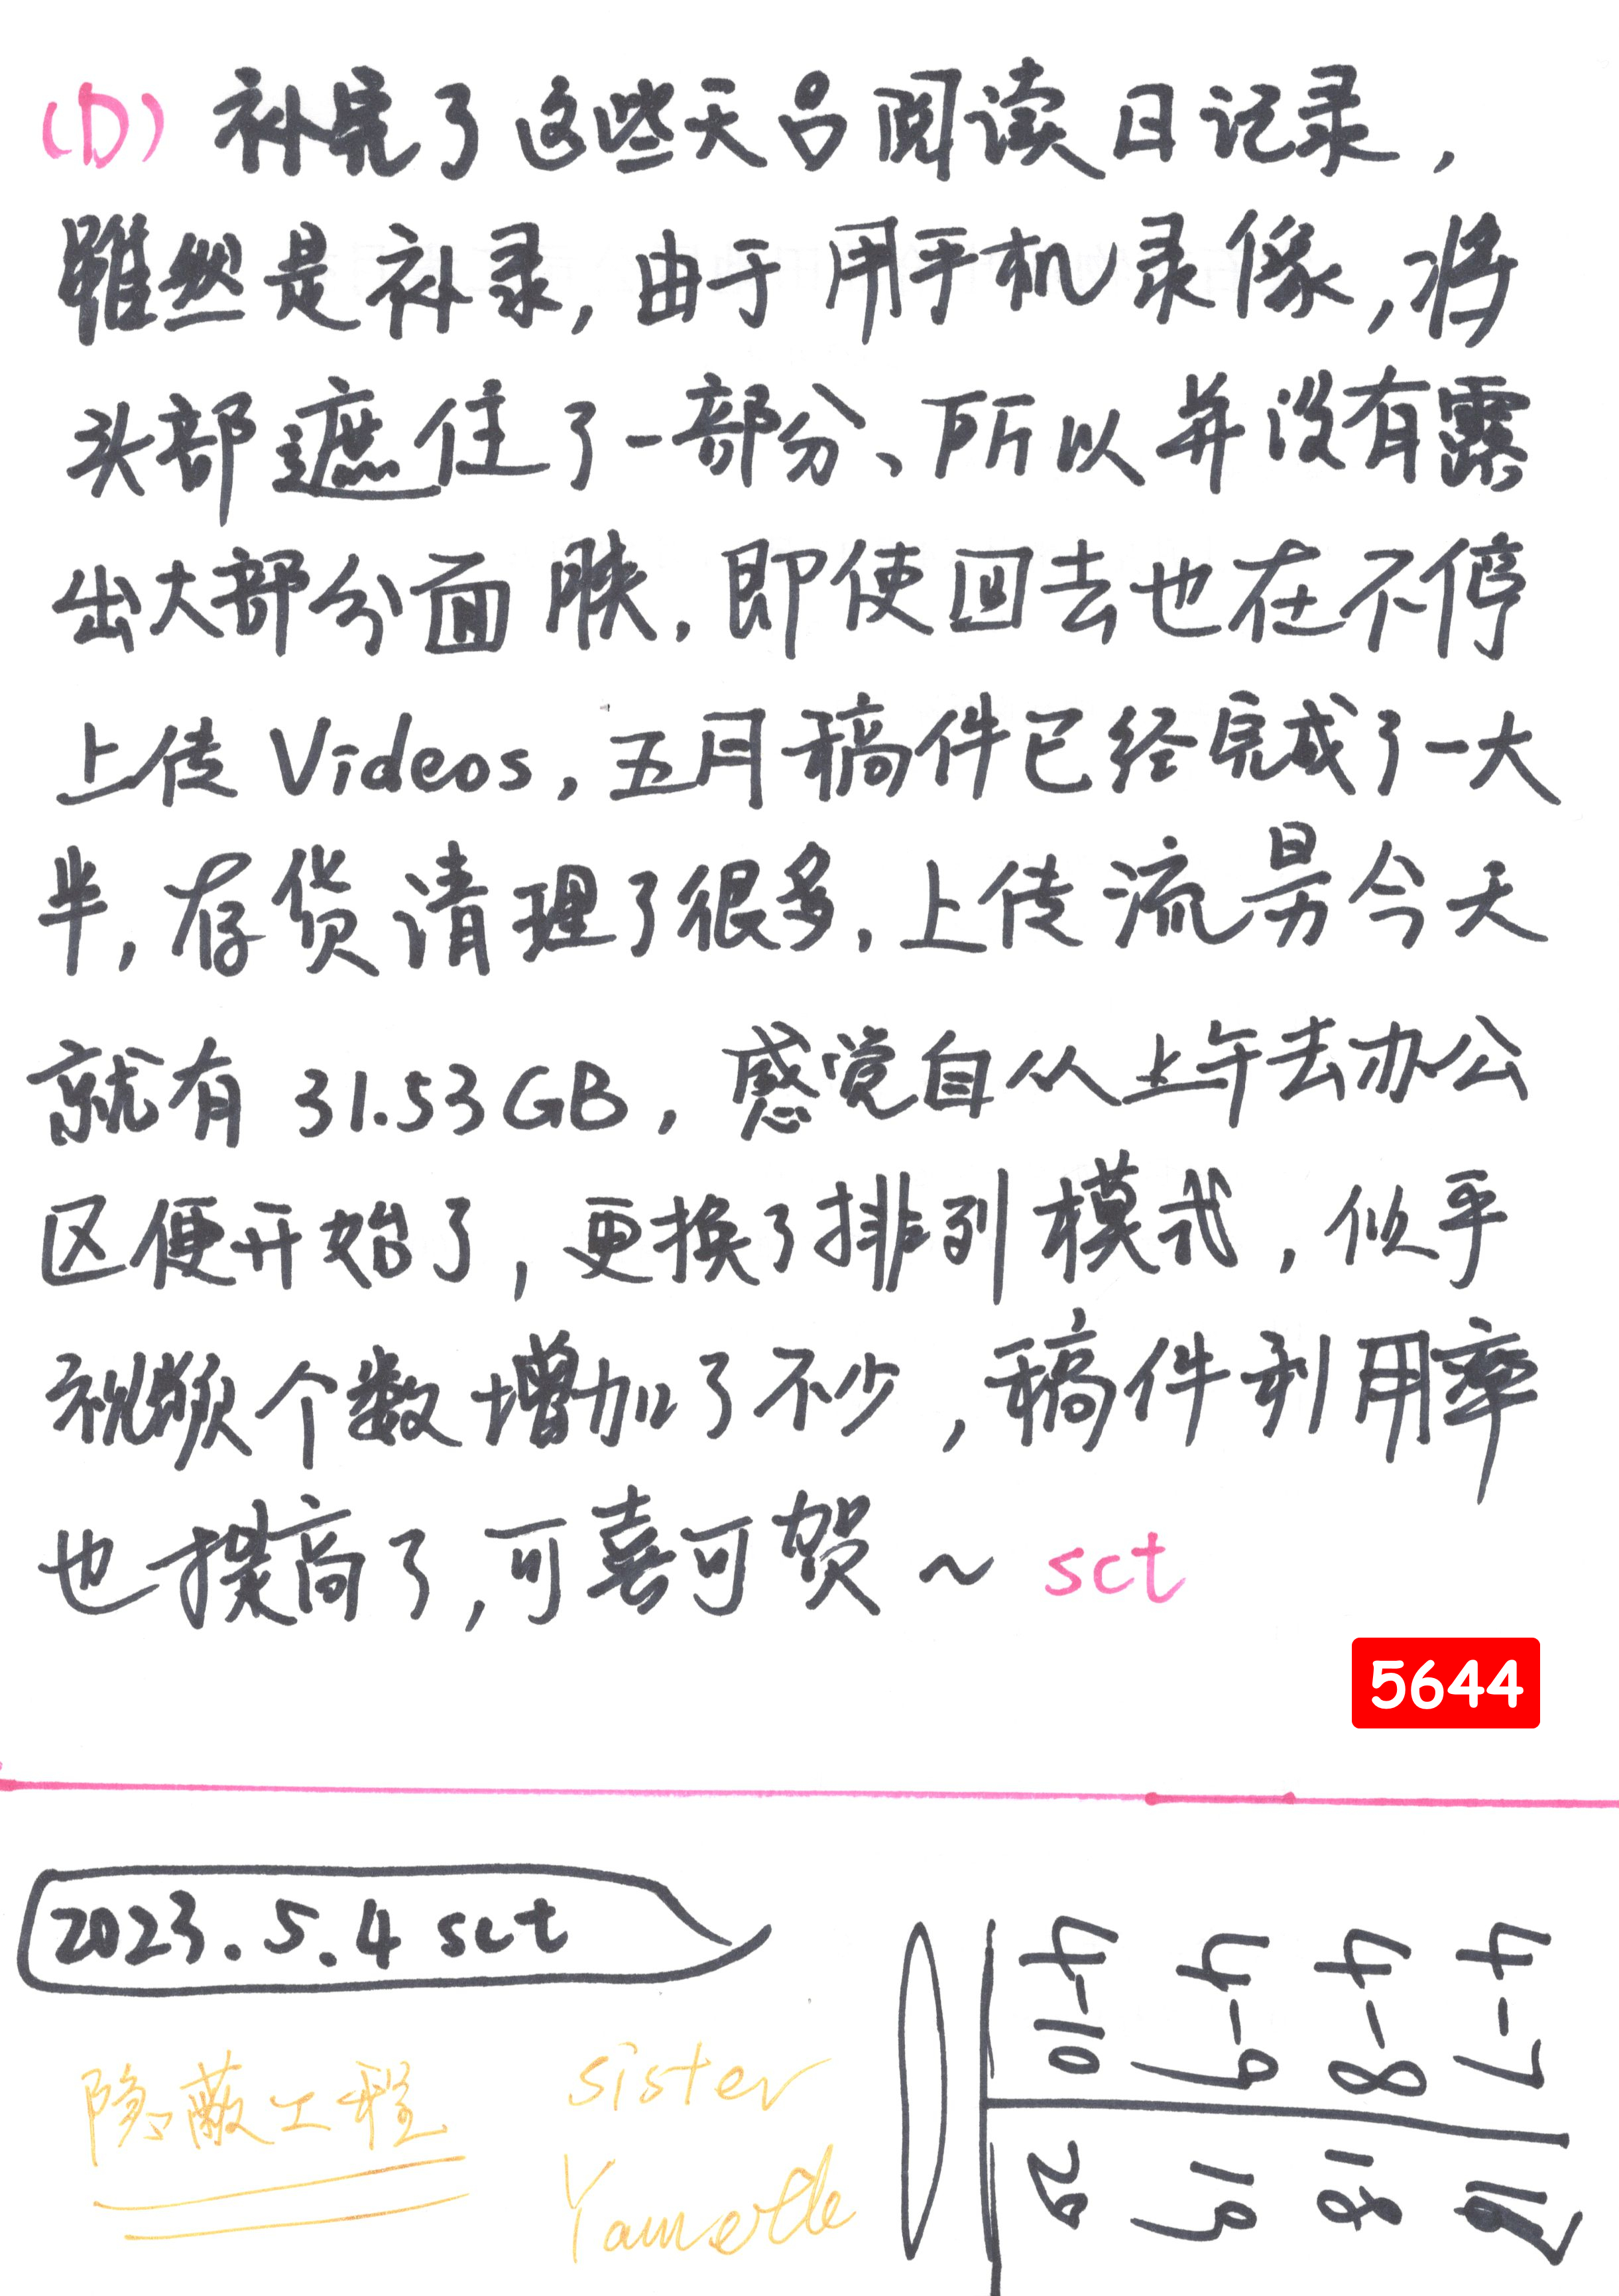 (D) 补完了这些天的阅读日记录,
虽然是补录,由于用手机录像,将
头部遮住了一部分、所以并没有露
出大部分面膜.即使回去也在不停
上传Videos,五月稿件已经完成了一大
半,存货清理了很多,上传流量今天
就有31.53GB,感觉自从上午去办公
区便开始了,更换了排列模式,似乎
视频个数增加了不少,稿件利用率
也提高了,可喜可贺~ sct
5644
2023.5.4 sct
隐蔽工程
sister
4-7 | 17
4-8 | 18
4-9 | 19
4-10 | 20